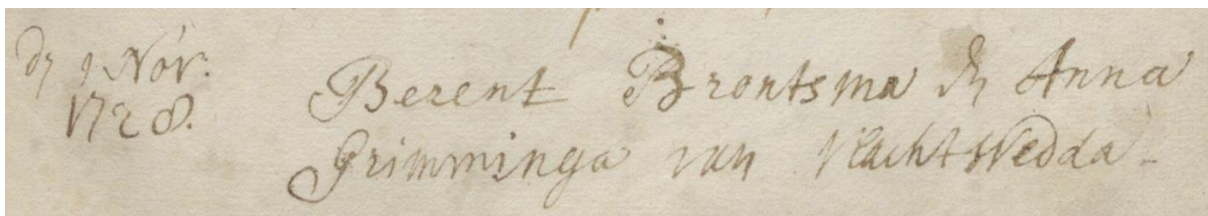 dẏ 9 Nov:
1728.
Berent Brontsma & Anna
Grimminga van Vlachtwedda